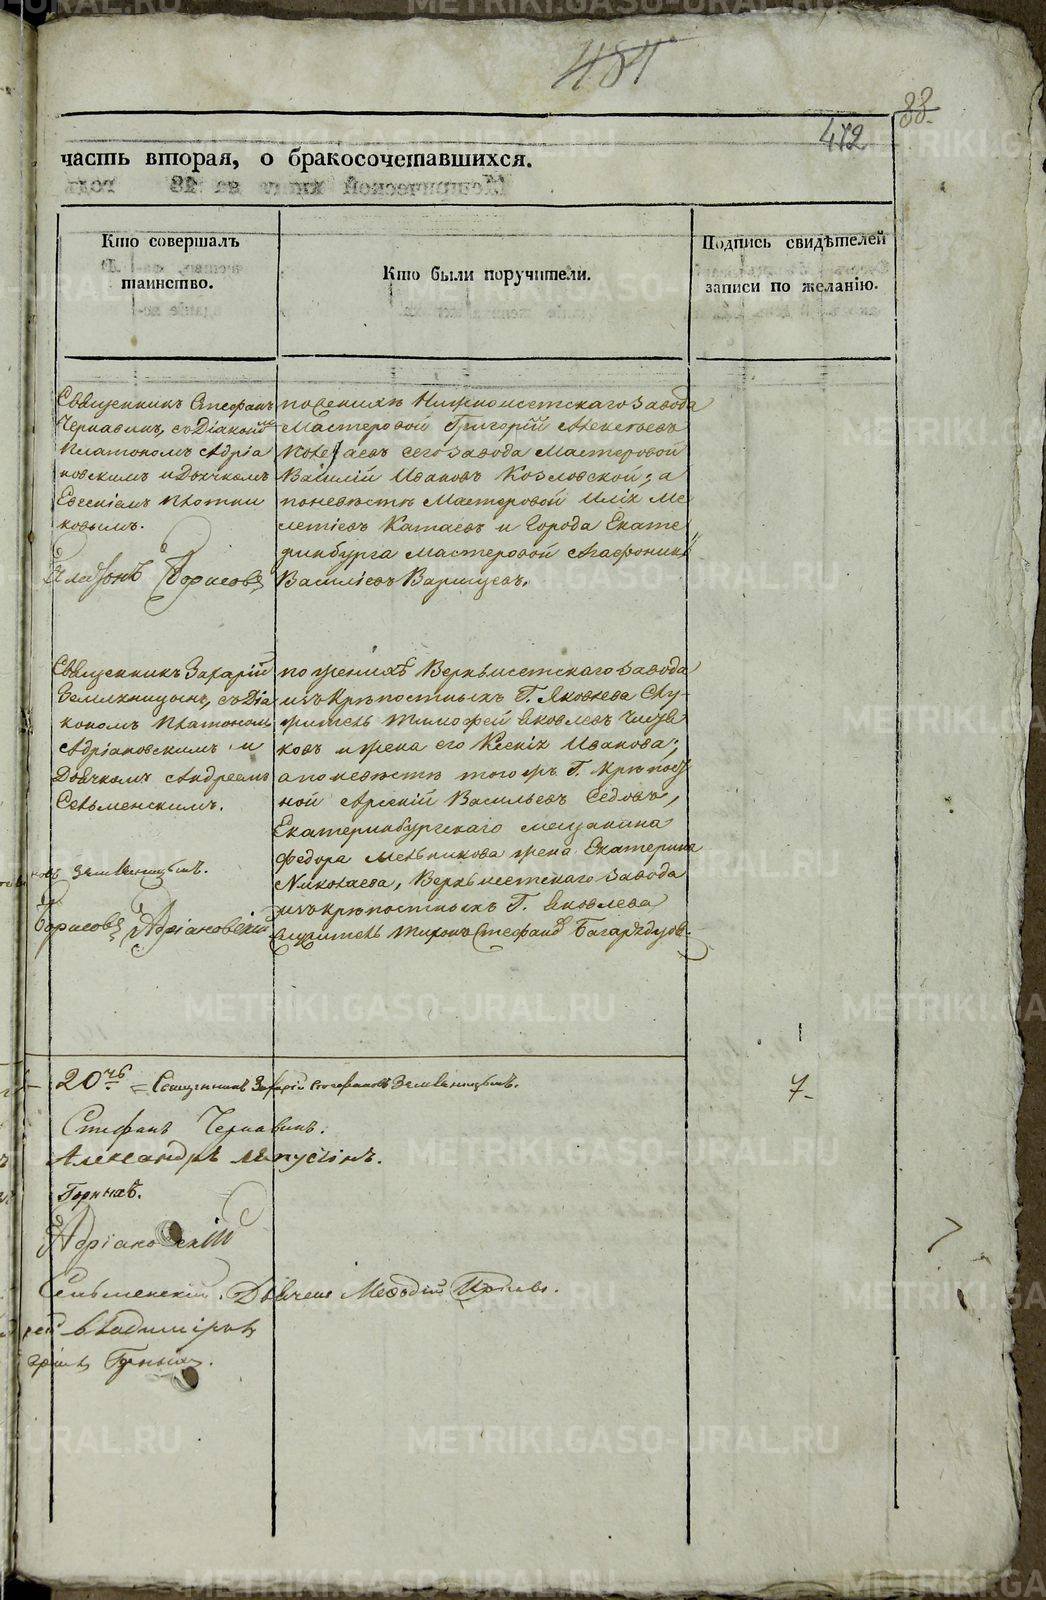 481
33
412
часть вторая, о бракосочетавшихся.
Кто совершалъ
таинство.
Кто были поручители.
Подпись свидѣтелей
записи по желанію.
Священникъ Стефанъ
Чернавинъ, съ Діакономъ
Платономъ Адріа
новскимъ и Дьячкомъ
Евгеніемъ Плотни
ковымъ.
Борисовъ
по женихѣ Нижноисетскаго завода
Мастеровой Григорій Алексѣевъ
сего завода Мастеровой
Василій Ивановъ Козловской; а
по невѣстѣ Мастеровой Илія Ме
летіевъ Катаевъ и города Екате
ринбурга мастеровой Агафоникъ
Василіевъ
Священникъ Захарій
Земляницынъ, съ Діа
кономъ Платономъ
Адріановскимъ и
Дьячкомъ Андреемъ
Сельменскимъ.
Земляницынъ.
Борисовъ Адріановскій
по женихѣ Верхъисетскаго завода
изъ крѣпостныхъ Г. Яковлева Слу
житель Тимофей Яковлевъ
ковъ и жена его Ксенія Иванова;
а по невѣстѣ того жъ Г. крѣпост
ной Арсеній Васильевъ Седовъ,
Екатеринбургскаго мещанина
Федора Мельникова жена Екатерина
Николаева, Верхъисетскаго завода
изъ крѣпостныхъ Г. Яковлева
служитель Тихонъ Стефановъ
1
20 = Священникъ Захарій Стефановъ Земляницынъ.
7
Стефанъ Чернавинъ.
Александръ
Горныхъ.
Адріановскій
Сельменскій. Дьячекъ Мефодій
Владиміръ
METRIKI.GASO-URAL.RU